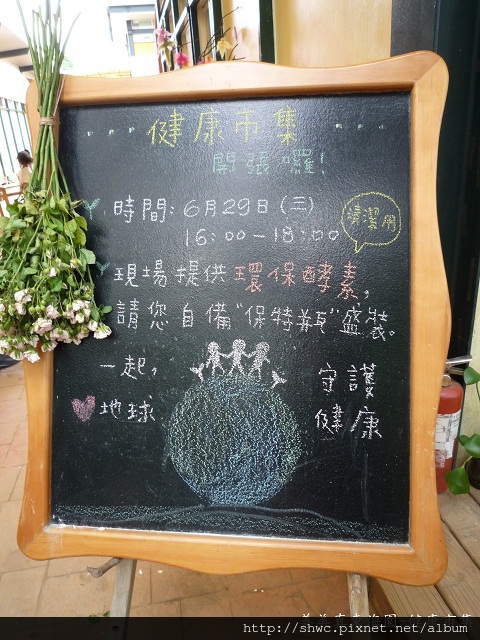 健康市集
開張囉！
時間：6月29日（三）
16：00－18：00
清潔用
現場提供環保酵素，
請您自備"保特瓶"盛裝。
一起，
守護
地球
健康
http://shwc.pixnet.net/album